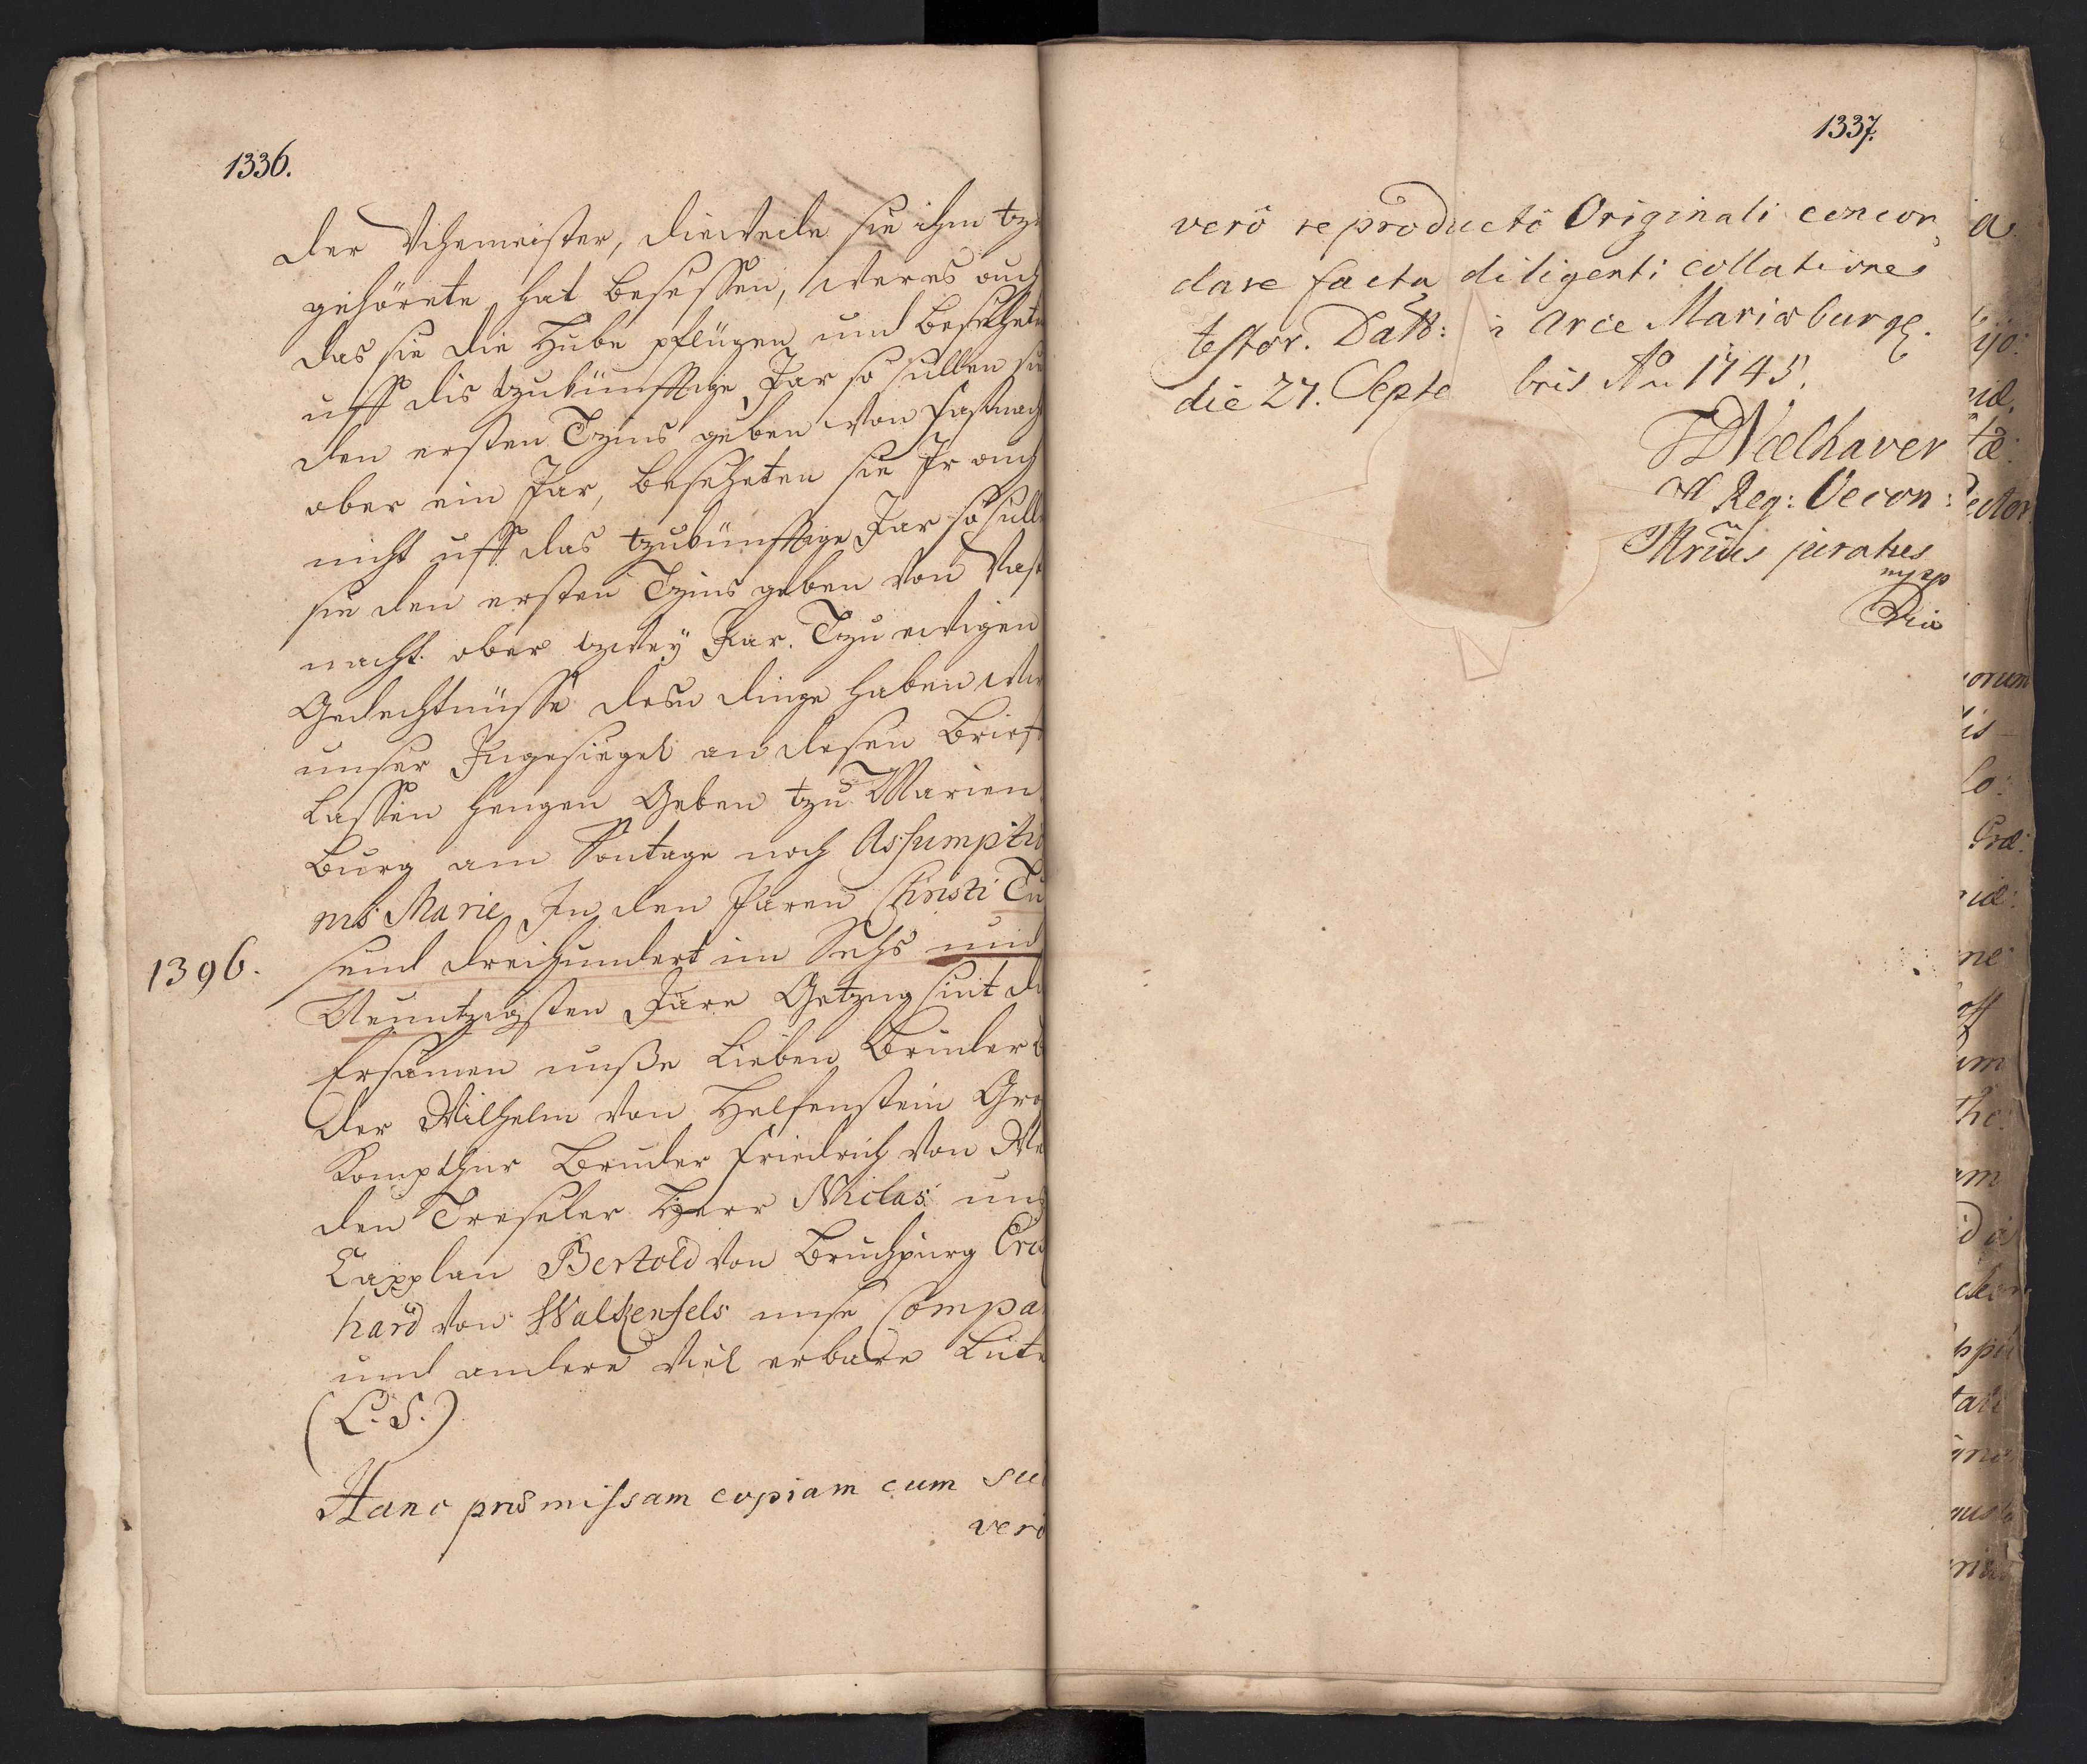 1336.
der Vihemeister, dieweile sie ihm tzu
gehörete hat besessen, weres ouch
das sie die Hube pflügen und beseheten
uff dis tzukünfftige Jar so sullen sie
den ersten Tzins geben von Fastnacht
ober ein Jar, beseheten sie Ir ouch
nicht uff das tzukünfftige Jar so sulle
sie den ersten Tzins geben von Vast
nacht ober tzwey Jar. Tzu ewigen
Gedechtnüsse deser dinge haben wir
unser Ingesiegel an desen Brief
lassen hengen Geben tzu Marien
burg am Sontage noch Assumptio
nis Marie In den Jaren Christi Tu
1396.
send dreihundert im Sechs und
Neuntzigsten Jare Getzug sint die
Ersamen unße Lieben Brüder B
der Wilhelm von Helfenstein Gros
Kompthur Bruder Friedrich von We
den Treseler Herr Niclas uns
Capplan Bertold von Bruchpurg Eri
hard von Walkenfels unse Compa
und andere Viel erbare Lüte
(L. S.)
Hanc præmissam copiam cum suo
vero
1337.
verô reproductô Originali concor
dare facta diligenti collatione
testor. Datt: i Arce Mariæburg.
die 27. Septe bris Ao 1745.
Woelhaver
Reg: Oecon:
Mrius juratus
mpp